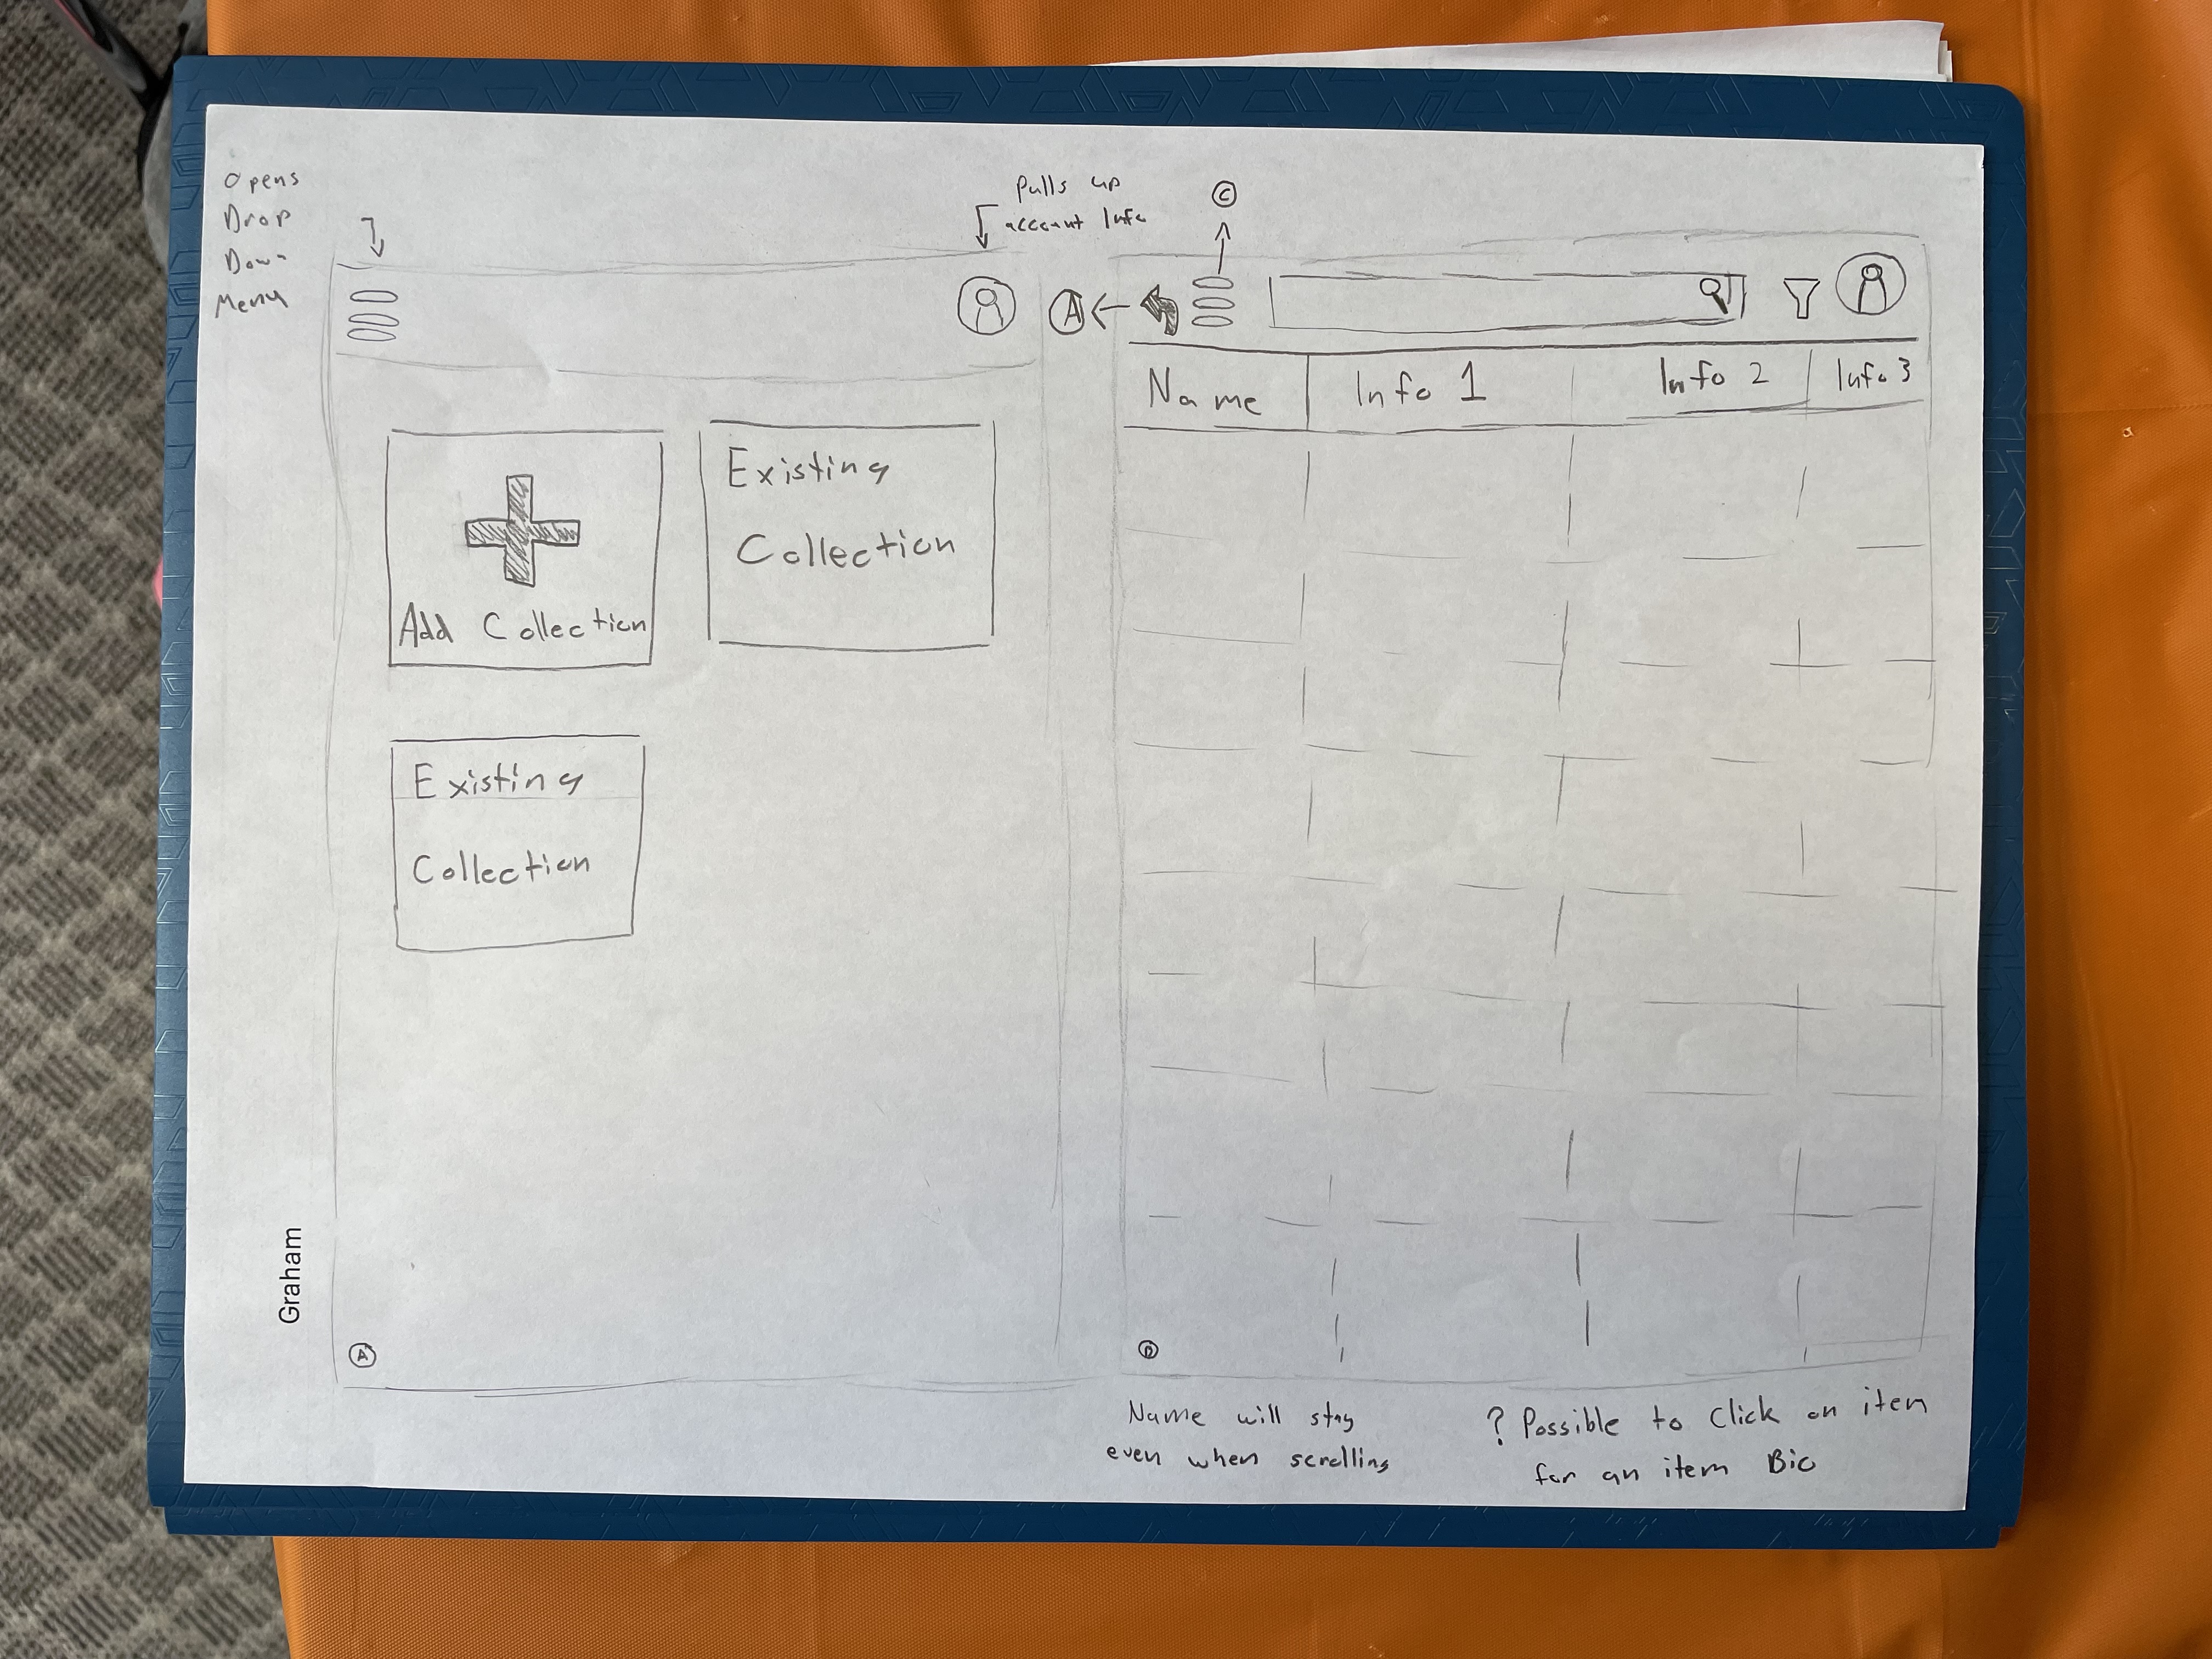 Opens
Drop
Down
Menu
Pulls up
account Info
Add Collection
Existing
Collection
Existing
Collection
A
Graham
C
A
Name Info 1 Info 2 Info 3
Name will stay
even when scrolling
? Possible to Click on item
for an item Bio